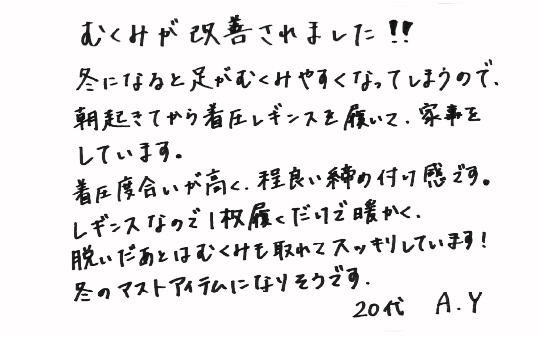 むくみが改善されました!!
冬になると足がむくみやすくなってしまうので、
朝起きてから着圧レギンスを履いて、家事を
しています。
着圧度合いが高く、程良い締め付け感です。
レギンスなので1枚履くだけで暖かく、
脱いだあとはむくみも取れてスッキリしています!
冬のマストアイテムになりそうです。
20代 A.Y